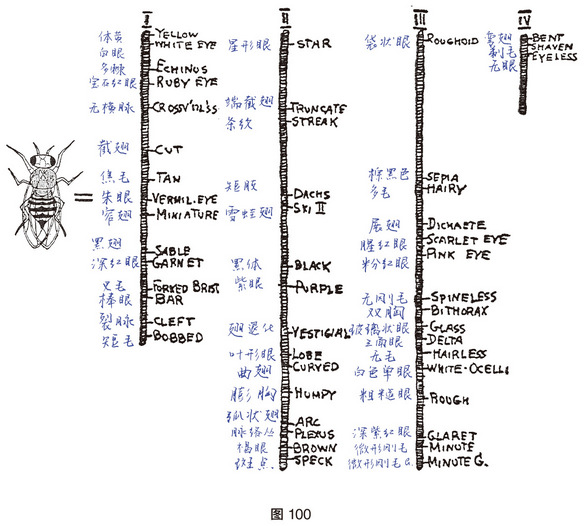 I
体黄 YELLOW
白眼 WHITE EYE
多棘 ECHINUS
宝石红眼 RUBY EYE
无横脉 CROSSV'NL'S
截翅 CUT
焦毛 TAN
朱眼 VERMIL.EYE
窄翅 MINIATURE
黑翅 SABLE
深红眼 GARNET
叉毛 FORKED BRIST
棒眼 BAR
裂脉 CLEFT
短毛 BOBBED
II
星形眼 STAR
端截翅 TRUNCATE
条纹 STREAK
短肢 DACHS
雪蛙翅 SKI II
黑体 BLACK
紫眼 PURPLE
翅退化 VESTIGIAL
叶形眼 LOBE
曲翅 CURVED
膨胸 HUMPY
弧状翅 ARC
脉络丛 PLEXUS
褐眼 BROWN
斑点 SPECK
III
袋状眼 ROUGHOID
棕黑色 SEPIA
多毛 HAIRY
展翅 DICHAETE
腥红眼 SCARLET EYE
粉红眼 PINK EYE
无刚毛 SPINELESS
双胸 BITHORAX
玻璃状眼 GLASS
三角眼 DELTA
无毛 HAIRLESS
白色单眼 WHITE-OCELLI
粗糙眼 ROUGH
深紫红眼 CLARET
微形刚毛 MINUTE
微形刚毛G. MINUTE G.
IV
弯翅 BENT
剃毛 SHAVEN
无眼 EYELESS
=
图 100